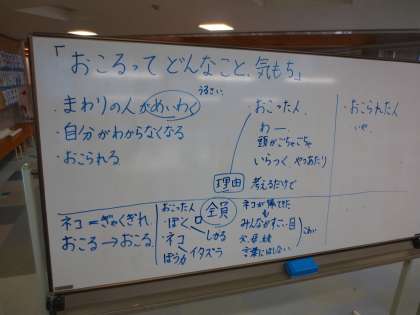 「おこるって どんなこと、気もち」
うるさい
・まわりの人がめいわく
・自分がわからなくなる
・おこられる
・おこった人
わー
頭がごちゃごちゃ
いらっく やつあたり
理由 考えるだけで
・おこられた人
いや。
ネコ=ぎゃくぎれ
おこる→おこる。
おこった人
全員
・ぼく
しかる
・ネコ
ぼうか イタズラ
ネコが帰ってきた
みんながすごい目
父、母、妹
こわい
言葉にはしない